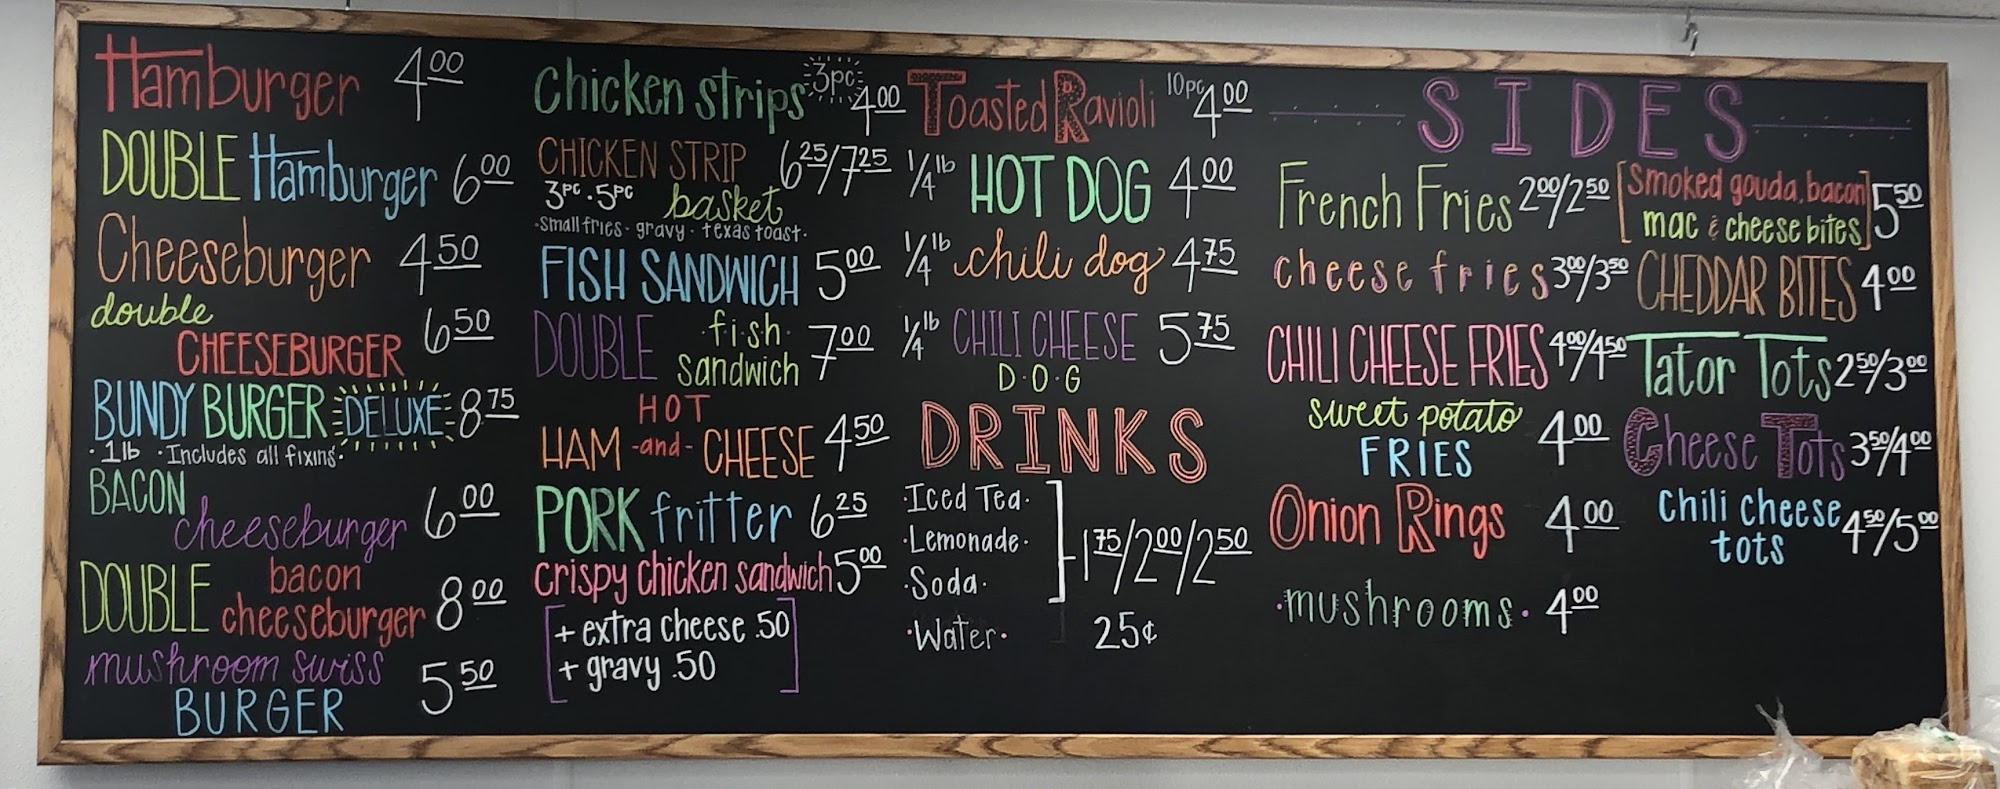 Hamburger 4.00
DOUBLE Hamburger 6.00
Cheeseburger 4.50
double
CHEESEBURGER 6.50
BUNDY BURGER DELUXE 8.75
· 1lb · Includes all fixins·
BACON
cheeseburger 6.00
DOUBLE bacon
cheeseburger 8.00
mushroom swiss
BURGER 5.50
Chicken strips 3pc 4.00
CHICKEN STRIP 6.25/7.25
3pc · 5pc basket
·small fries · gravy · texas toast·
FISH SANDWICH 5.00
DOUBLE ·fish·
sandwich 7.00
HOT
HAM -and- CHEESE 4.50
PORK fritter 6.25
crispy chicken sandwich 5.00
+ extra cheese .50
+ gravy .50
Toasted Ravioli 10pc 4.00
1/4 lb HOT DOG 4.00
1/4 lb chili dog 4.75
1/4 lb CHILI CHEESE 5.75
D·O·G
DRINKS
·Iced Tea·
·Lemonade·
·Soda· 1.75/2.00/2.50
·Water· 25¢
SIDES
French Fries 2.00/2.50
cheese fries 3.00/3.50
CHILI CHEESE FRIES 4.00/4.50
sweet potato
FRIES 4.00
Onion Rings 4.00
·mushrooms· 4.00
[Smoked gouda, bacon]
[mac & cheese bites] 5.50
CHEDDAR BITES 4.00
Tator Tots 2.50/3.00
Cheese Tots 3.50/4.00
Chili cheese
tots 4.50/5.00